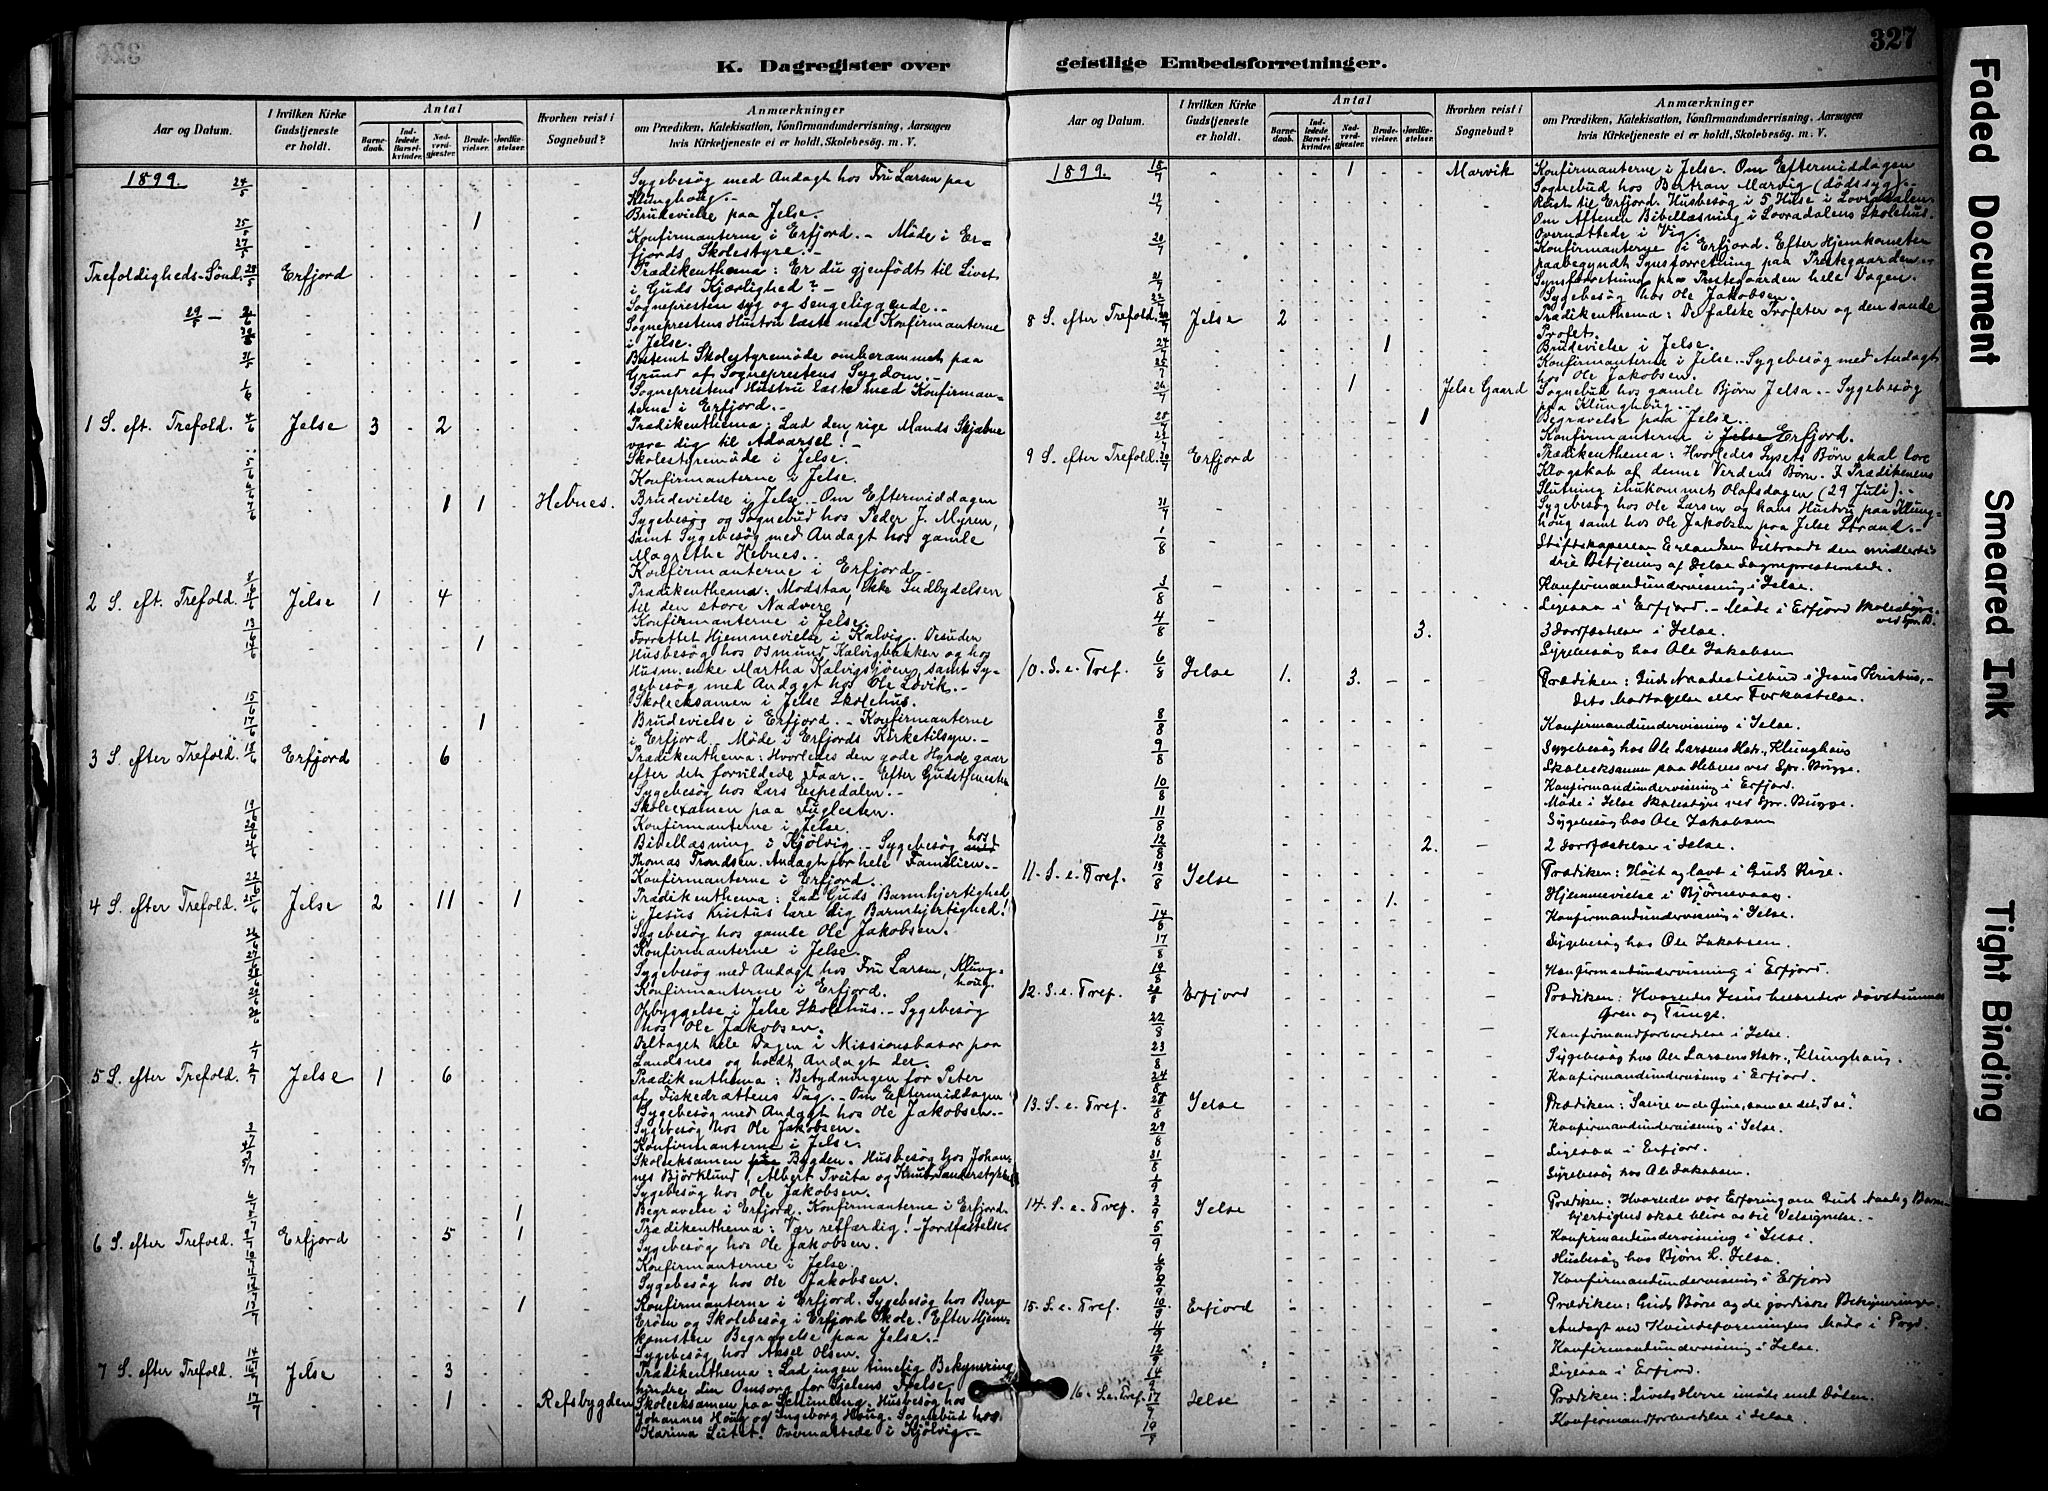 327
K. Dagregister over geistlige Embedsforretninger.
Aar og Datum.
I hvilken Kirke Gudstjeneste er holdt.
Antal
Barnedaab.
Indledede Barselkvinder.
Nadverdgjæster.
Brudevielser.
Jordfæstelser.
Hvorhen reist i Sognebud?
Anmærkninger
om Prædiken, Katekisation, Konfirmandundervisning, Aarsagen
hvis Kirketjeneste ei er holdt, Skolebesög. m. V.
1899. 24/5 Sygebesøg med Andagt hos Fru Larsen paa
Klunghoug.-
25/5 1 Brudevielse paa Jelse.
27/5 Konfirmanterne i Erfjord. - Møde i Er=
fjords Skolestyre.-
Trefoldigheds-Sønd. 28/5 Erfjord Prædikenthema: Er du gjenfødt til Livet
i Guds Kjærlighed? -
29/5 - Sognepresten syg og sengeliggende.-
Sogneprestens Hustru læste med Konfirmanterne
i Jelse.
31/5 Bestemt Skolestyremøde omberammet paa
Grund af Sogneprestens Sygdom.-
1/6 Sogneprestens Hustru læste med Konfirman-
terne i Erfjord.-
1 S. eft. Trefold. 4/6 Jelse 3 2 Prædikenthema: Lad den rige Mands Skjæbne
være dig til Advarsel!
5/6 Skolestyremøde i Jelse.
6/6 Konfirmanterne i Jelse.
7/6 1 1 Hebnes. Brudevielse i Jelse.- Om Eftermiddagen
Sygebesøg og Sognebud hos Peder J. Myren,
samt Sygebesøg med Andagt hos gamle
Magrethe Hebnes.-
8/6 Konfirmanterne i Erfjord.-
2 S. eft. Trefold. Jelse 1 4 Prædikenthema: Modstaa ikke Indbydelsen
til den store Nadvere
13/6 Konfirmanterne i Jelse.
14/6 1 Forrettet Hjemmevielse i Kalvig. Desuden
Husbesøg hos Osmund Kalvigbakken og hos
Husm.enke Martha Kalvigsjøen, samt Sy-
gebesøg med Andagt hos Ole Løvik.-
15/6 Skoleeksamen i Jelse Skolehus.
17/6 1 Brudevielse i Erfjord.- Konfirmanterne
i Erfjord. Møde i Erfjords Kirketilsyn.-
3 S. efter Trefold. 18/6 Erfjord 6 Prædikenthema: Hvorledes den gode Hyrde gaar
efter det forvildede Faar.- Efter Gudstjenesten
Sygebesøg hos Lars Espedalen.-
19/6 Skoleexamen paa Fuglesten.
20/6 Konfirmanterne i Jelse.
21/6 Bibellæsning i Kjølvig.- Sygebesøg hos
Thomas Trondsen. Andagt for hele Familien.-
22/6 Konfirmanterne i Erfjord.-
4 S. efter Trefold. 25/6 Jelse 2 11 1 Prædikenthema: Lad Guds Barmhjertighed
i Jesus Kristus lære dig Barmhjertighed!
26/6 Sygebesøg hos gamle Ole Jakobsen.
27/6 Konfirmanterne i Jelse.
28/6 Sygebesøg med Andagt hos Fru Larsen, Klung-
houg.
29/6 Konfirmanterne i Erfjord.
Opbyggelse i Jelse Skolehus.- Sygebesøg
hos Ole Jakobsen.
1/7 Deltaget hele Dagen i Missionsbasar paa
Landsnes og holdt Andagt der.
5 S. efter Trefold. 2/7 Jelse 1 6 Prædikenthema: Betydningen for Peter
af Fiskedrættens Dag.- Om Eftermiddagen
Sygebesøg med Andagt hos Ole Jakobsen.-
3/7 Sygebesøg hos Ole Jakobsen.
4/7 Konfirmanterne i Jelse.
5/7 Skoleeksamen Bygden. Husbesøg hos Johan-
nes Bjørklund, Albert Tveita og Knut
Sygebesøg hos Ole Jakobsen.
1 Begravelse i Erfjord. Konfirmanterne i Erfjord.
6 S. efter Trefold. 9/7 Erfjord 5 1 Prædikenthema: Vær retfærdig! - Jordfæstelse
10/7 Sygebesøg hos Ole Jakobsen.
11/7 Konfirmanterne i Jelse.
12/7 Sygebesøg hos Ole Jakobsen.
13/7 1 Konfirmanterne i Erfjord. Sygebesøg hos Berge
Erøen og Skolebesøg i Erfjord Skole. Efter Hjem-
komsten Begravelse paa Jelse.-
14/7 Sygebesøg hos Aksel Olsen.
7 S. efter Trefold. 16/7 Jelse 3 Prædikenthema: Lad ingen timelig Bekymring
hindre din Omsorg for Sjælens Frelse.
17/7 1 Refsbygden Skoleeksamen paa. Husbesøg hos
Johannes Houg og Ingeborg Houg. Sognebud hos
Karina. Overnattede i Kjølvig.-
1899. 18/7 1 Marvik Konfirmanterne i Jelse. Om Eftermiddagen
Sognebud hos Bertran Marvig (dødssyg).-
19/7 Reist til Erfjord. Husbesøg i 5 Huse i Lovradalen.
Om Aftenen Bibellæsning i Lovradalens Skolehus.
Overnattede i Vig.
20/7 Konfirmanterne i Erfjord. Efter Hjemkomsten
paabegyndt Synsforretning paa Prestegaarden.-
21/7 Synsforretning paa Prestegaarden hele Dagen.
22/7 Sygebesøg hos Ole Jakobsen.
8 S. efter Trefold. Jelse 2 Prædikenthema: De falske Profeter og den sande
Profet.
24/7 1 Brudevielse i Jelse.
25/7 Konfirmanterne i Jelse.- Sygebesøg med Andagt
hos Ole Jakobsen.
26/7 1 Jelse Gaard Sognebud hos gamle Bjørn Jelsa.- Sygebesøg
paa Klunghoug.-
1 Begravelse paa Jelse.-
Konfirmanterne i Jelse Erfjord.
9 S. efter Trefold. 30/7 Erfjord Prædikenthema: Hvorledes Lysets Børn skal lære
Klogskab af denne Verdens Børn. I Prædikenens
Slutning ihukommet Olafsdagen (29 Juli).-
31/7 Sygebesøg hos Ole Larsen og hans Hustru paa Klung-
houg samt hos Ole Jakobsen paa Jelse Strand.-
1/8 Stiftskapellan Erlandsen tiltraadte den midlerti-
die Betjening af Jelse Sogneprestembede.
3/8 Konfirmandundervisning i Jelse.
Ligesaa i Erfjord.- Møde i Erfjord Skolestyre.
4/8 3. 3 Jordfæstelser i Jelse.
Sygebesøg hos Ole Jakobsen
10. S. e. Tref. 6/8 Jelse 1. 3. Prædiken: Guds Naadestilbud i Jesus Kristus,-
dets Modtagelse eller Forkastelse.
8/8 Konfirmandundervisning i Jelse.
9/8 Sygebesøg hos Ole Larsens Hstr., Klunghaug
Skoleeksamen paa Hebnes ved Spr. Bugge.
10/8 Konfirmandundervisning i Erfjord.
Møde i Jelse Skolestyre ved Spr. Bugge.
11/8 Sygebesøg hos Ole Jakobsen
12/8 2. 2 Jordfæstelser i Jelse.
11. S. e. Tref. 13/8 Jelse Prædiken: Høit og lavt i Guds Rige.
1. Hjemmevielse i Bjørnevaag.
14/8 Konfirmandundervisning i Jelse.
17/8 Sygebesøg hos Ole Jakobsen.
19/8 Konfirmandundervisning i Erfjord.
12. S. e. Tref. Erfjord Prædiken: Hvorledes Jesus helbreder døvstummes
Øren og Tunge.
22/8 Konfirmandforberedelse i Jelse.
23/8 Sygebesøg hos Ole Larsens Hstr., Klunghaug.
24/8 Konfirmandundervisning i Erfjord.
13. S. e. Tref. Jelse Prædiken: Salige er de Øine, som se det, I se."
29/8 Konfirmandundervisning i Jelse.
31/8 Ligesaa i Erfjord.
1/9 Sygebesøg hos Ole Jakobsen.
14. S. e. Tref. 3/9 Jelse Prædiken: Hvorledes vor Erfaring om Guds Naade og Barm-
hjertighed skal blive os til Velsignelse.-
5/9 Konfirmandundervisning i Jelse.
6/9 Husbesøg hos Bjørn L. Jelsa.
Konfirmandundervisning i Erfjord
15. S. e. Tref. 10/9 Erfjord Prædiken: Guds Børn og de jordiske Bekymringer.
11/9 Andagt ved Kvindeforeningens Møde i
12/9 Konfirmandundervisning i Jelse.
14/9 Ligesaa i Erfjord.
16. S. e. Tref. 17/9 Jelse Prædiken: Livets Herre imøte med Døden.
19/9 Konfirmandforberedelse i Jelse.
Faded Document
Smeared Ink
Tight Binding